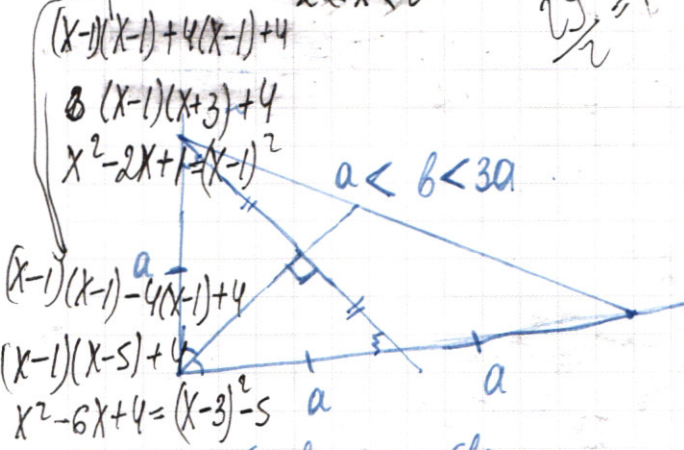 (x-1)(x-1)+4(x-1)+4
(x-1)(x+3)+4
x²-2x+1=(x-1)²
a < b < 3a
a
(x-1)(x-1)-4(x-1)+4
(x-1)(x-5)+4
a
a
x²-6x+4=(x-3)²-5